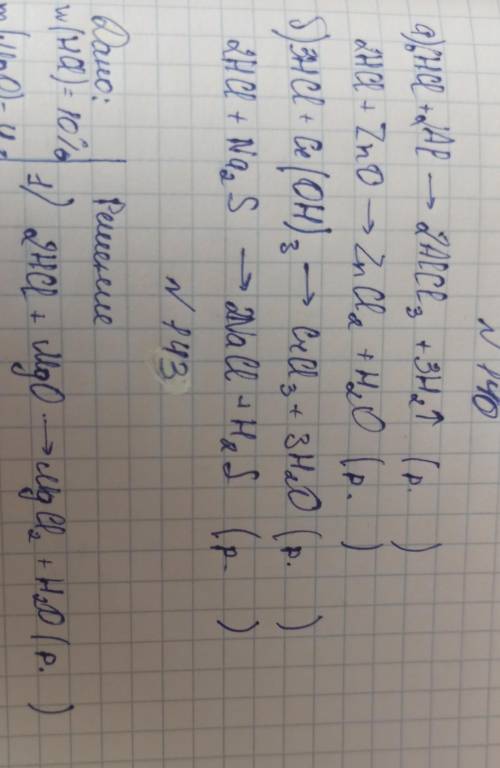 N 140
а) 6HCl + 2Al → 2AlCl₃ + 3H₂↑ (р. )
2HCl + ZnO → ZnCl₂ + H₂O (р. )
б) 3HCl + Cr(OH)₃ → CrCl₃ + 3H₂O (р. )
2HCl + Na₂S → 2NaCl + H₂S (р. )
N 143
Дано: Решение
w(HCl) = 10% 1) 2HCl + MgO → MgCl₂ + H₂O (р. )
m(MgO) = 4г